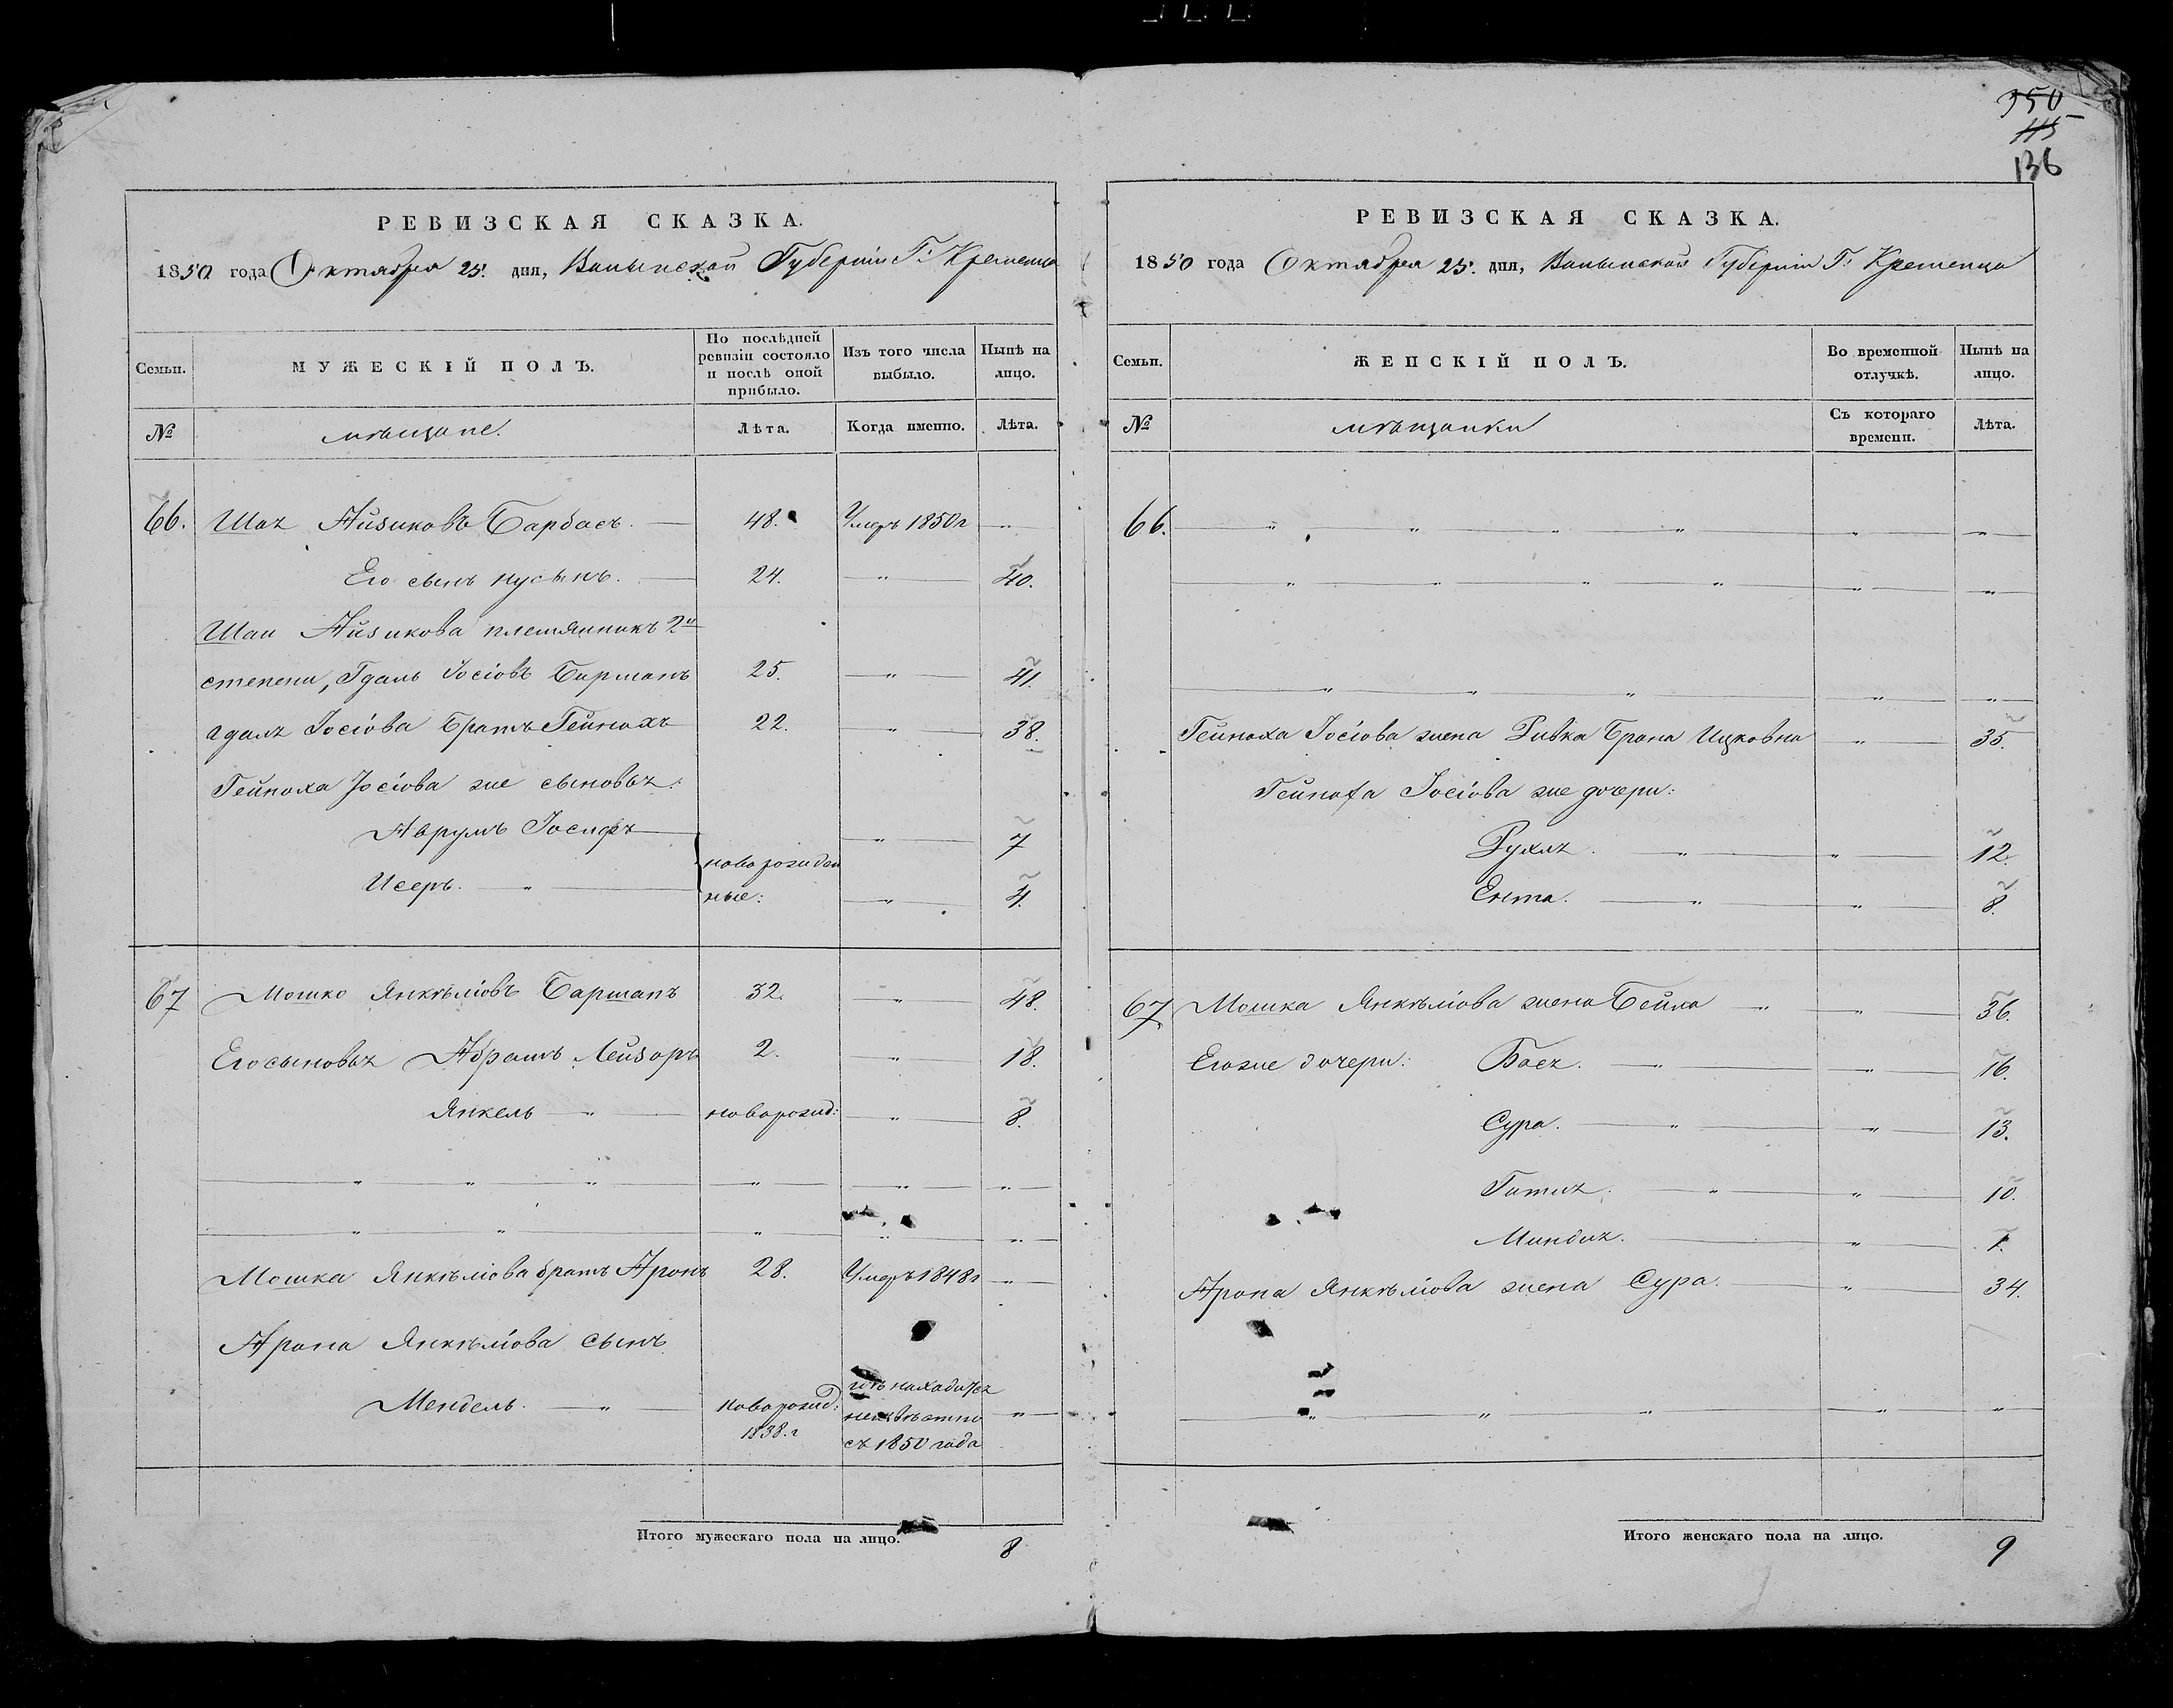 350
115
136
РЕВИЗСКАЯ СКАЗКА.
1850 года Октября 25. дня, Волынской Губерніи Г: Кременца
Семьи.
МУЖЕСКІЙ ПОЛЪ.
По послѣдней ревизіи состояло и послѣ оной прибыло.
Изъ того числа выбыло.
Нынѣ на лицо.
№
мѣщане.
Лѣта.
Когда именно.
Лѣта.
66. Шая Айзиковъ Барбасъ. — 48. Умеръ 1850 г — „ —
Его сынъ Нусынъ. — 24. — „ — 40.
Шаи Айзикова племянникъ 2й
степени, Гдаль Іосіовъ Бирманъ 25. — „ — 41.
Гдаля Іосіова братъ Гейнохъ 22. — „ — 38.
Гейноха Іосіова же сыновья:
Аврумъ Іосифъ — новорожден — „ — 7
Исеръ. — „ — ные: — „ — 4.
67 Мошко Янкѣліовъ Барманъ 32. — „ — 48.
Его сыновья Абрамъ Лейзоръ 2. — „ — 18.
Янкель — „ — новорожд: — „ — 8.
— „ — „ — „ — „ — „ — „ —
— „ — „ — „ — „ — „ —
Мошка Янкѣліова братъ Аронъ 28. Умеръ 1848 г — „ —
Арона Янкѣліова сынъ
Мендель. — „ — новорожд: 1838. г гдѣ находится неизвѣстно съ 1850 года — „ —
Итого мужескаго пола на лицо. 8
РЕВИЗСКАЯ СКАЗКА.
1850 года Октября 25. дня, Волынской Губерніи Г: Кременца
Семьи.
ЖЕНСКІЙ ПОЛЪ.
Во временной отлучкѣ.
Нынѣ на лицо.
№
мѣщанки
Съ котораго времени.
Лѣта.
66. — „ — „ — „ — „ — „ — „ —
— „ — „ — „ — „ — „ — „ —
— „ — „ — „ — „ — „ —
Гейноха Іосіова жена Ривка Брана Ицковна — „ — 35.
Гейноха Іосіова же дочери:
Рухля. — „ — „ — 12.
Ента. — „ — „ — 8.
67. Мошка Янкѣліова жена Бейла — „ — „ — 36.
Его же дочери: Бася. — „ — „ — 16.
Сура. — „ — „ — 13.
Гитля. — „ — „ — 10.
Миндля. — „ — 1.
Арона Янкѣліова жена Сура. — „ — 34.
— „ — „ — „ — „ — „ —
Итого женскаго пола на лицо. 9